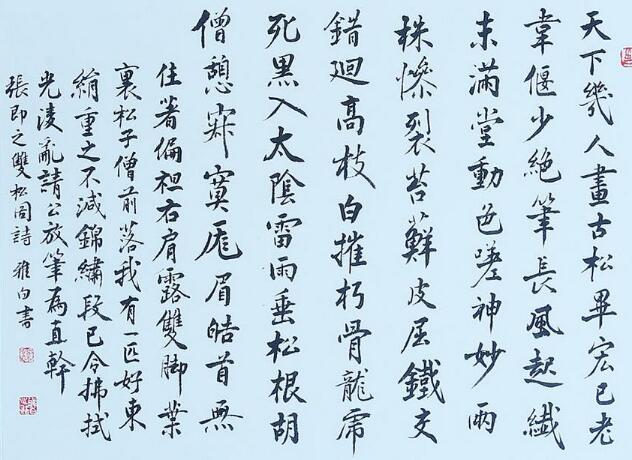 天下幾人畫古松畢宏已老
韋偃少絕筆長風起纖
末滿堂動色嗟神妙兩
株慘裂苔蘚皮屈鐵交
錯廻高枝白摧朽骨龍虎
死黑入太陰雷雨垂松根胡
僧憩寂寞厖眉皓首無
住著偏袒右肩露雙脚葉
裏松子僧前落我有一匹好東
絹重之不減錦繡段已令拂拭
光凌亂請公放筆為直幹
張即之雙松图詩 雅白書